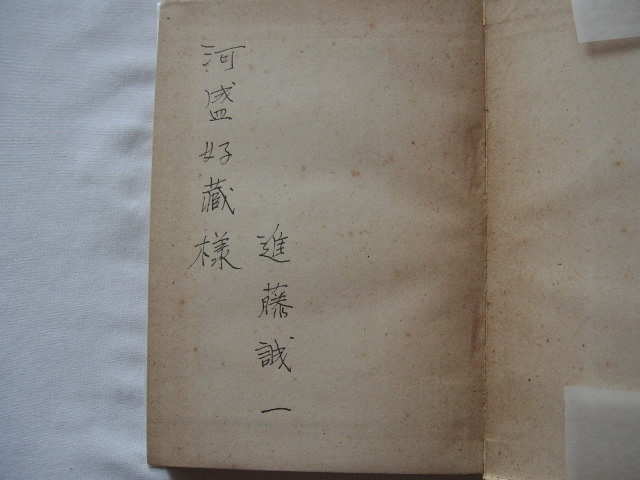 進藤誠一
河盛好蔵様